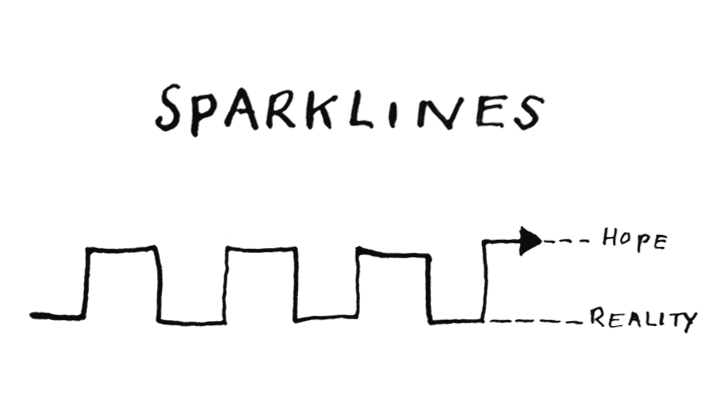 SPARKLINES
HOPE
REALITY